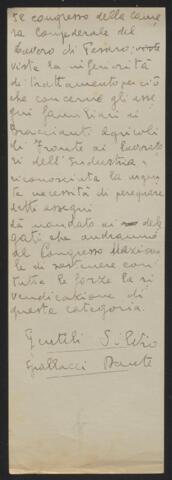 Il congresso della Came
ra Confederale del
Lavoro di Pesaro, viste
vista la inferiorità
di trattamento per ciò
che concerne gli asse
gni familiari ai
Braccianti Agricoli
di Fronte ai Lavorato
ri dell'Industria
riconosciuta la urgen
te necessità di perequare
detti assegni
dà mandato ai dele
gati che andranno
al Congresso Naziona
le di sostenere con
tutte le forze la ri
vendicazione di
questa categoria.
Gentili
Dante